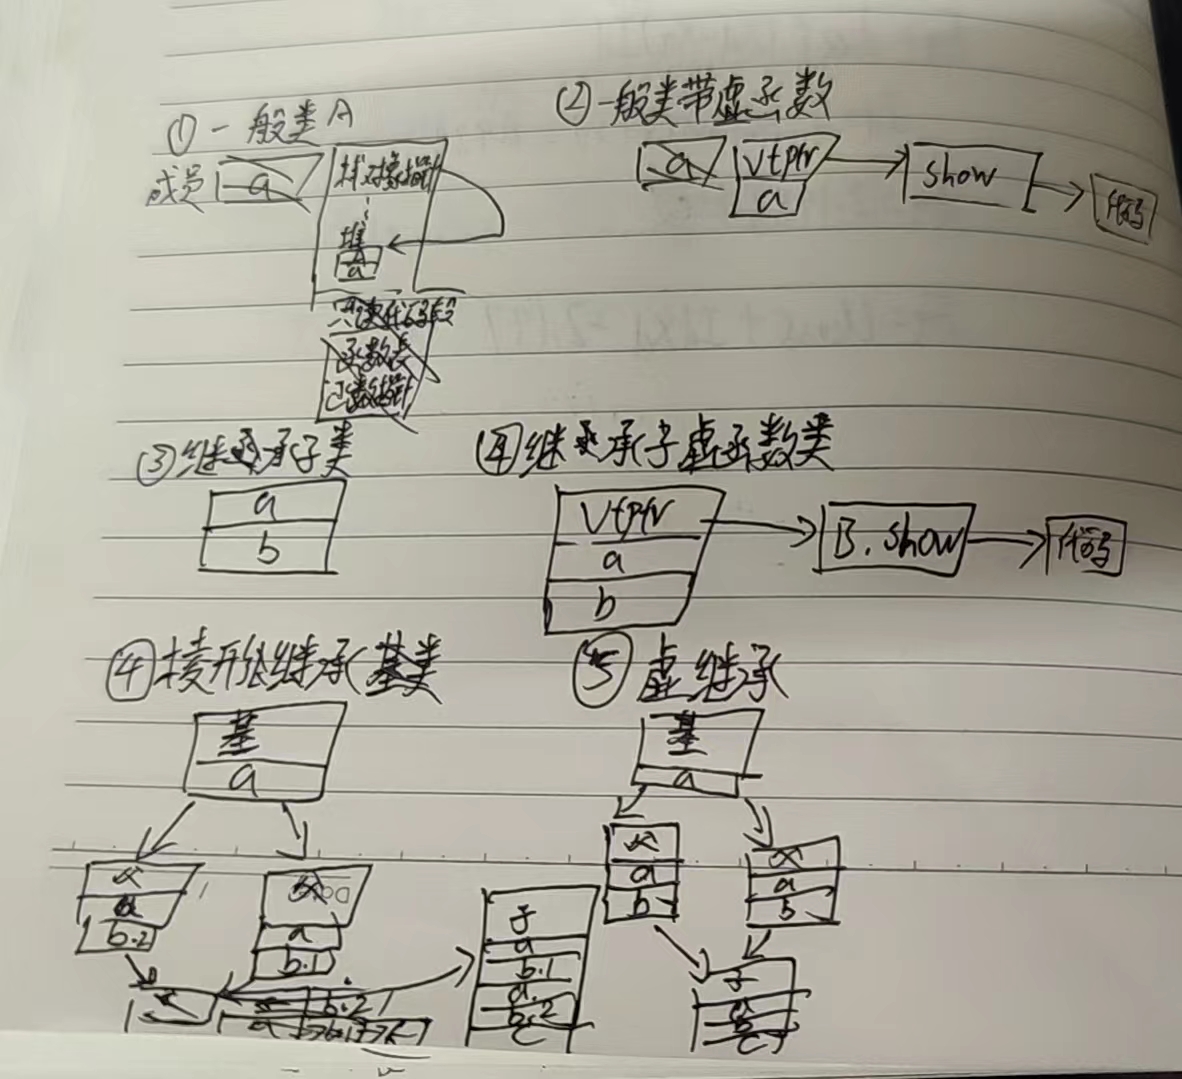 ① 一般类A
成员 a
栈对象指针
堆
A
a
只读代码段
函数表
② 一般类带虚函数
a
vtptr
a
show
代码
③ 继承子类
a
b
④ 继承子虚函数类
vtptr
a
b
B.show
代码
④ 菱形继承基类
基
a
父
a
b.2
父
a
b.1
b.2
a
子
a
b.1
a
b.2
c
⑤ 虚继承
基
a
父
a
b
父
a
b
子
a
b
c